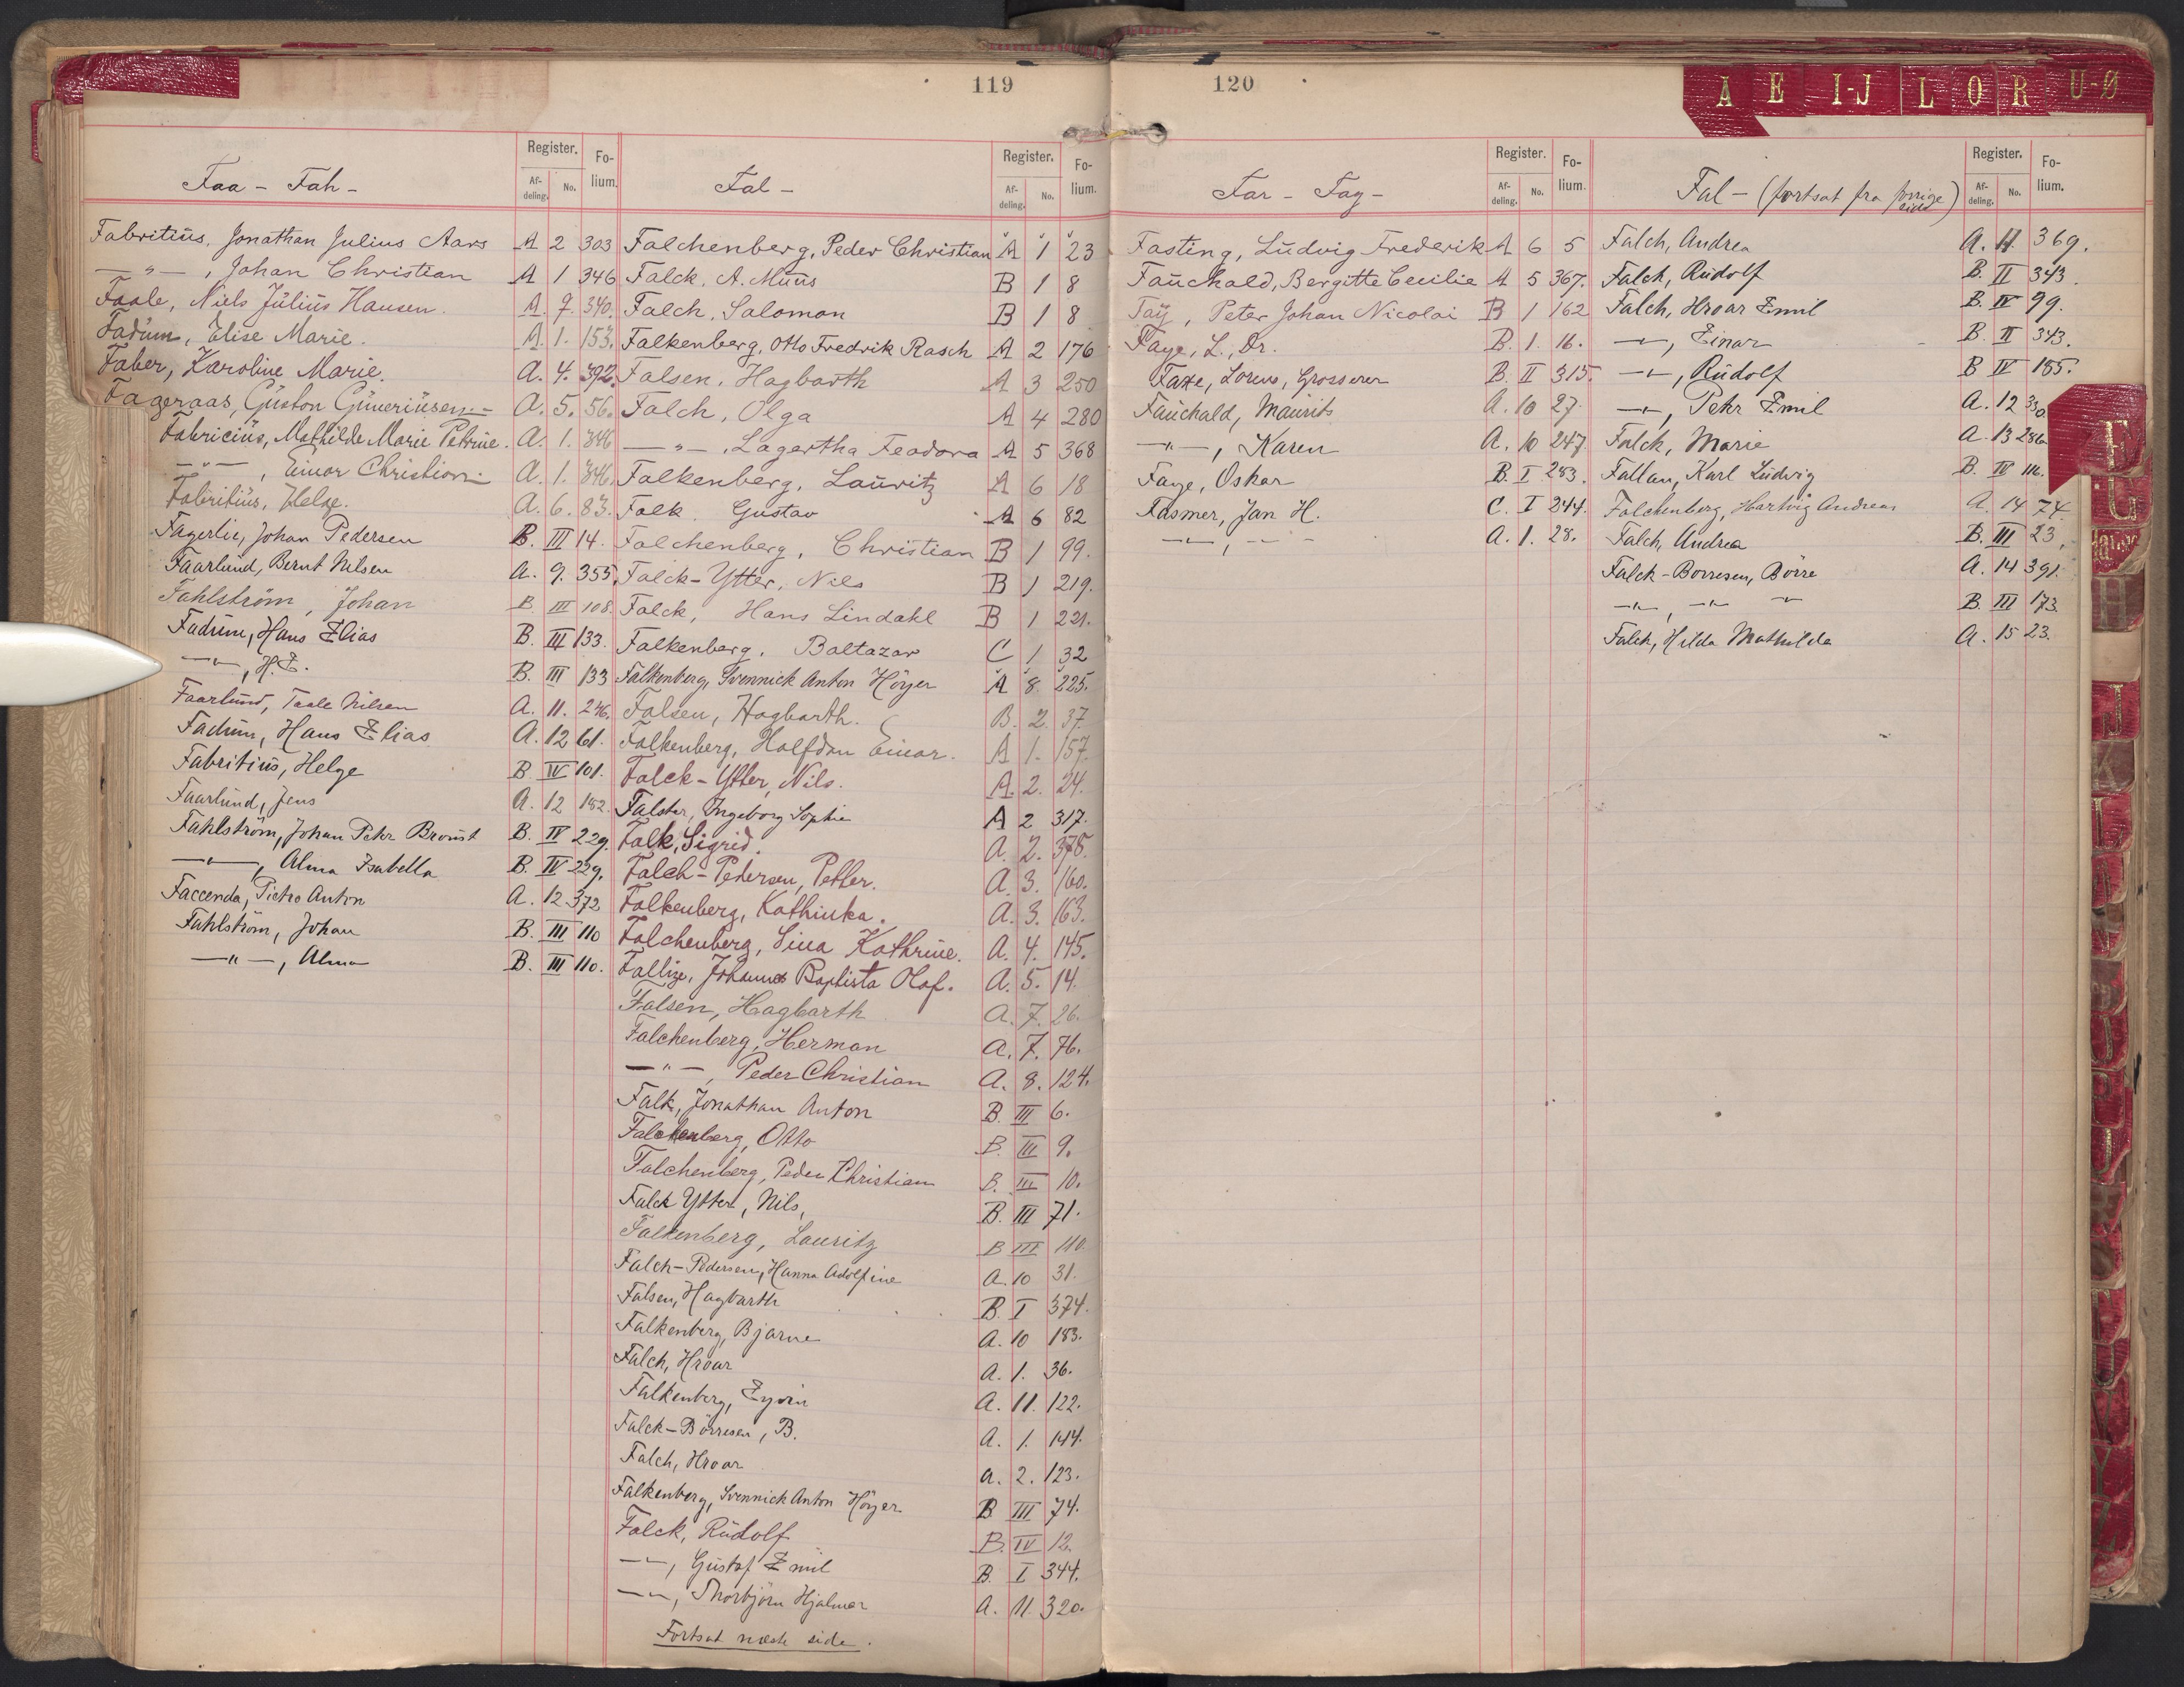 119
Register. Folium.
Afdeling. No.
Faa - Fah -
Fabritius, Jonathan Julius Aars A 2 303
—"—, Johan Christian A 1 346
Faale, Niels Julius Hansen. A. 7. 340.
Fadum, Elise Marie. A. 1. 153.
Faber, Karoline Marie. A. 4. 392.
Fageraas, Guston Guneriusen.- A. 5. 56.
Fabricius, Mathilde Marie Petrine. A. 1. 346
—"—, Einar Christian A. 1. 346.
Fabritius, Helge. A. 6. 83.
Fagerlie, Johan Pedersen B. III 14.
Faarlund, Bernt Nilsen A. 9. 355.
Fahlström, Johan B. III 108.
Fadum, Hans Elias B. III 133.
—"—, H.E. B. III 133
Faarlund, Taale Nilsen A. 11. 246.
Fadum, Hans Elias A. 12 61.
Fabritius, Helge B. IV 101.
Faarlund, Jens A. 12 152.
Fahlström, Johan Petr Broust B. IV 229.
—"—, Alma Isabella B. IV 229.
Faccenda, Pietro Anton A. 12 372
Fahlström, Johan B. III 110
—"—, Alma B. III 110.
Register. Folium.
Afdeling. No.
Fal -
Falchenberg, Peder Christian A 1 23
Falck, A. Muus B 1 8
Falch, Salomon B 1 8
Falkenberg, Otto Fredrik Rasch A 2 176
Falsen, Hagbarth A 3 250
Falch, Olga A 4 280
—"—, Lagertha Feodora A 5 368
Falkenberg, Lauritz A 6 18
Falk, Gustav A 6 82
Falchenberg, Christian B 1 99.
Falck-Ytter, Nils B 1 219.
Falck, Hans Lindahl B 1 221.
Falkenberg, Baltazar C 1 32
Falkenberg, Svennick Anton Höyer A 8. 225.
Falsen, Hagbarth. B. 2. 37.
Falkenberg, Halfdan Einar. A 1. 157.
Falck-Ytter, Nils. A. 2. 24.
Falster, Ingeborg Sophie A 2 317.
Falk, Sigrid. A. 2. 378.
Falch-Pedersen, Petter. A. 3. 160.
Falkenberg, Kathinka. A. 3. 163.
Falchenberg, Lina Kathrine. A. 4. 145.
Fallize, Johannes Baptista Olaf. A. 5. 14.
Falsen, Hagbarth A. 7. 26.
Falchenberg, Herman A. 7. 76.
—"—, Peder Christian A. 8. 124.
Falk, Jonathan Anton B. III 6.
Falckenberg, Otto B. III 9.
Falchenberg, Peder Christian B. III 10.
Falck Ytter, Nils, B. III 71.
Falkenberg, Lauritz B III 110
Falch-Pedersen, Hanna Adolfine A. 10 31.
Falsen, Hagbarth B. I 374.
Falkenberg, Bjarne A. 10 183.
Falch, Hroar A. 1. 36.
Falkenberg, Eyvin A. 11. 122.
Falck-Börresen, B. A. 1. 144.
Falch, Hroar A. 2. 123.
Falkenberg, Svennick Anton Höyer B III 74.
Falck, Rudolf B. IV 12.
—"—, Gustaf Emil B. I 344.
—"—, Thorbjörn Hjalmar A. 11. 320.
Fortsat næste side.
120
A E I-J L O R U-Ø
Register. Folium.
Afdeling. No.
Far - Fay -
Fasting, Ludvig Frederik A 6 5
Fauchald, Bergitte Cecilie A 5 367.
Faÿ, Peter Johan Nicolai B 1 162
Faye, L., Dr. B. 1. 16.
Faxe, Lorens, Grosserer B. II 315.
Fauchald, Maurits A. 10 27.
—"—, Karen A. 10 247.
Faye, Oskar B. I 283.
Fasmer, Jan H. C. I 244.
—"—, —"— A. 1. 28.
Register. Folium.
Afdeling. No.
Fal - (fortsat fra forrige side)
Falch, Andrea A. 11 369.
Falch, Rudolf B. II 343.
Falch, Hroar Emil B. IV 99.
—"—, Einar B. II 343.
—"—, Rudolf B IV 155.
—"—, Petr Emil A. 12 330
Falck, Marie A. 13 286
Fallan, Karl Ludvig B. IV 116.
Falchenberg, Hartvig Andreas A. 14 74.
Falch, Andrea B. III 23.
Falck-Borresen, Börre A. 14 391.
—"—, —"— —"— B. III 173.
Falch, Hilda Mathilde A. 15 23.